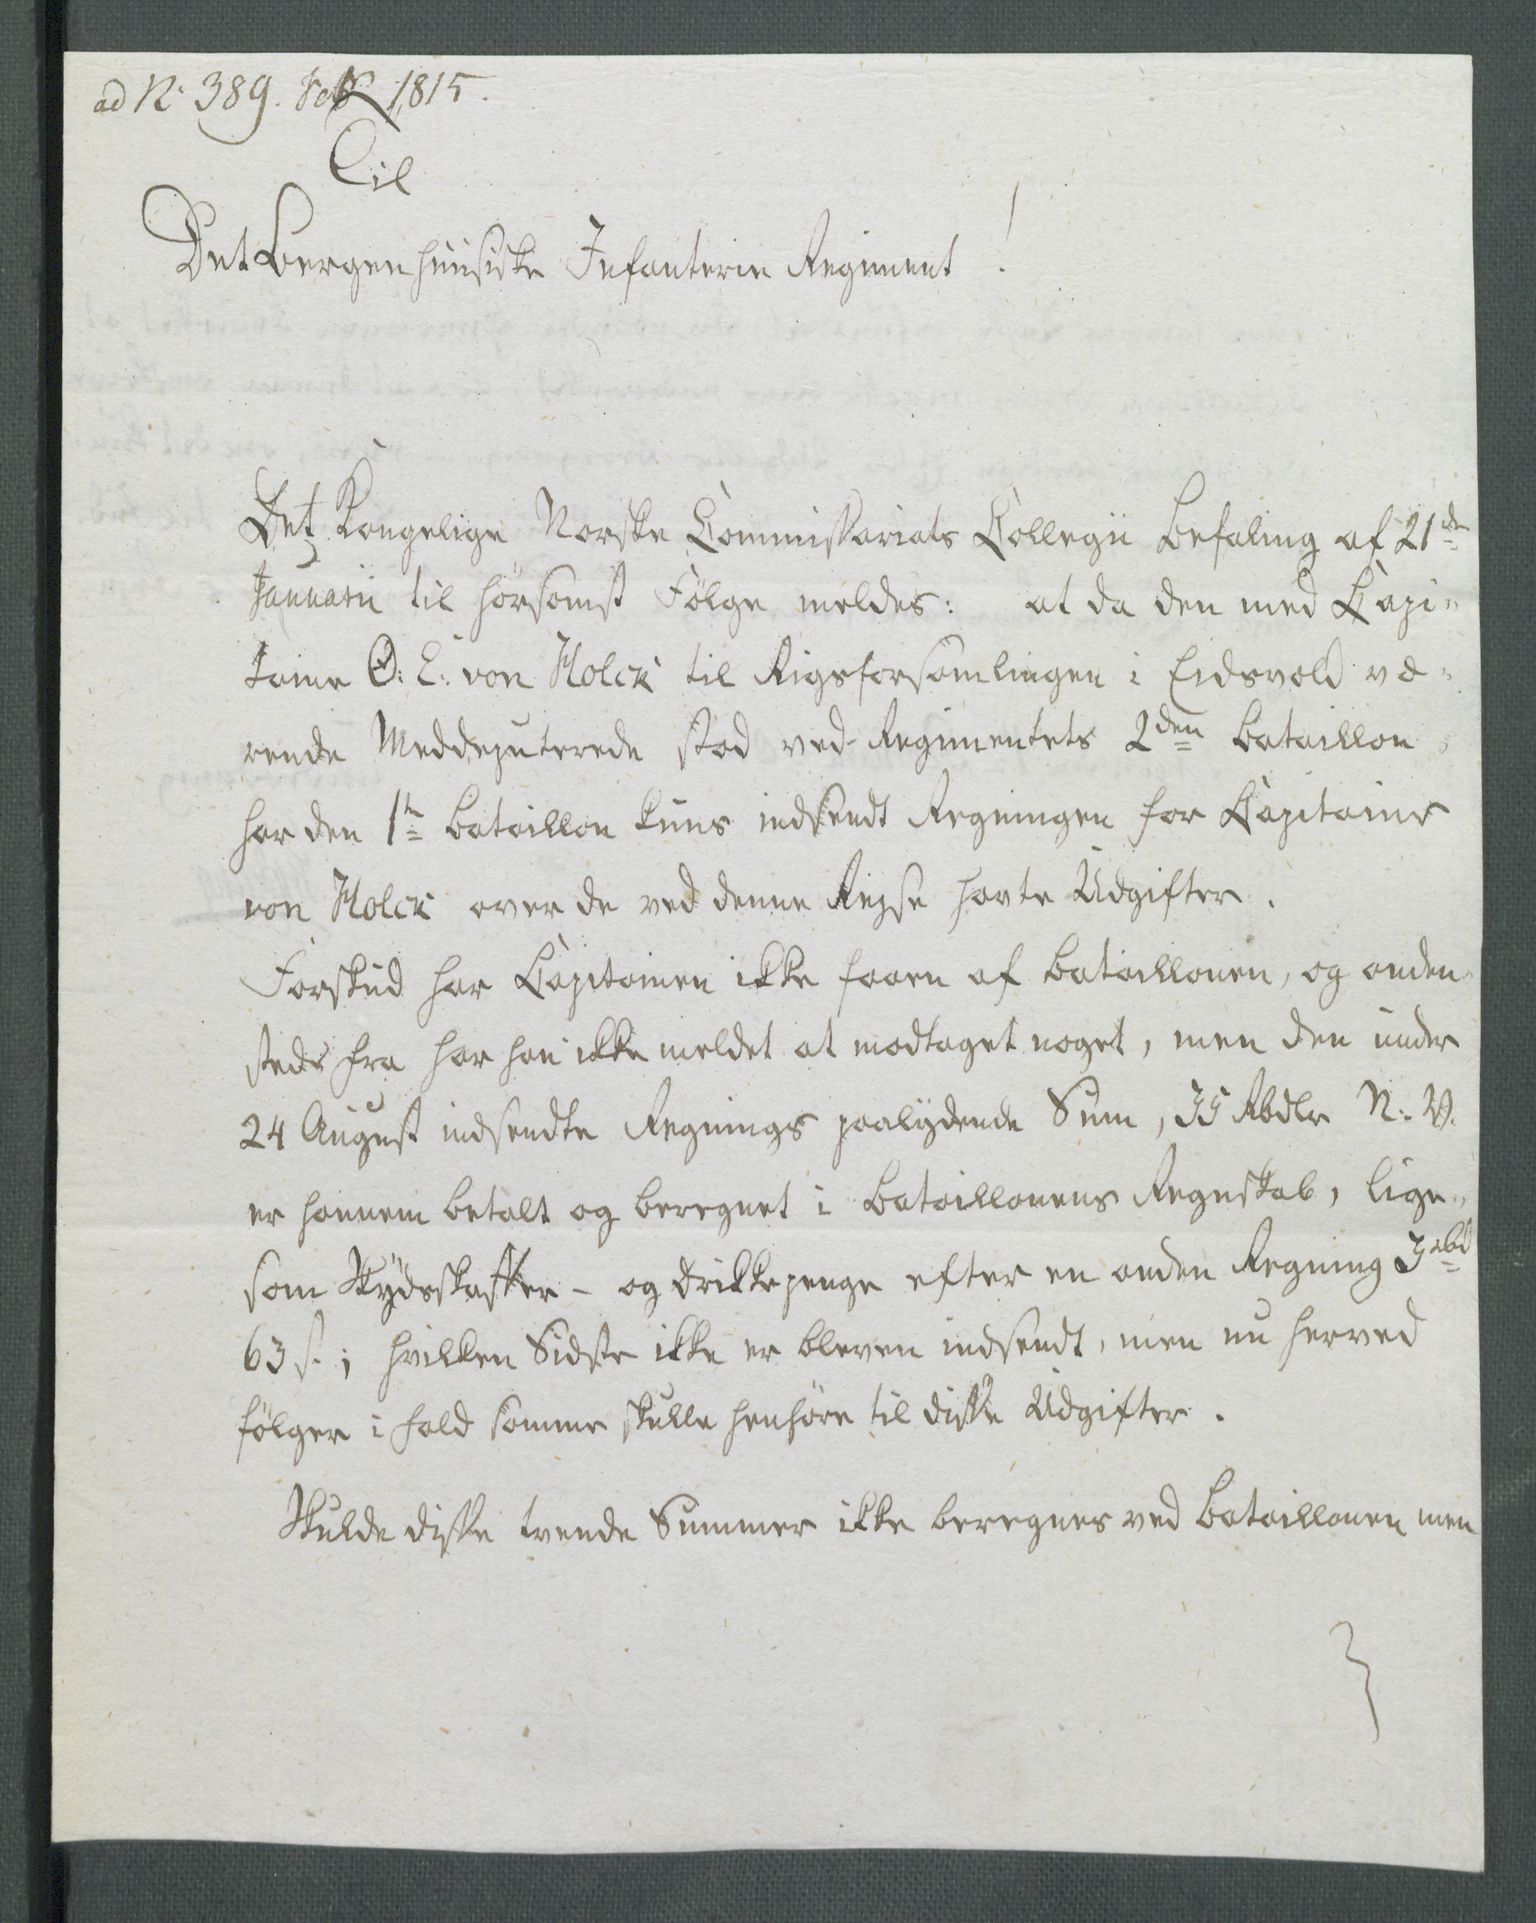 ad No 389. Feb 1815.
Til
Det Bergenhuusiske Infanterie Regiment!
Det Kongelige Norske Commissariats Collegii Befaling af 21de
Januarii til hørsomst Følge meldes: at da den med Capi-
taine O: E: von Holck til Rigsforsamlingen i Eidsvold væ-
rende Meddeputerede stod ved Regimentets 2den Bataillon
har den 1te Bataillon kuns indsendt Regningen for Capitaine
von Holck over de ved denne Rejse havte Udgifter.
Forskud har Capitainen ikke faaen af Bataillonen, og anden
steds fra har han ikke meldet at modtaget noget, men den under
24 August indsendte Regnings paalydende Sum, 35 Rbdlr N. V.
er hannem betalt og beregnet i Bataillonens Regnskab, lige-
som Skydsskaffer- og Drikkepenge efter en anden Regning 3 rbd
63 s.; hvilken Sidste ikke er bleven indsendt, men nu herved
følger i fald samme skulle henhøre til disse Udgifter.
Skulde disse tvende Summer ikke beregnes ved Bataillonen men